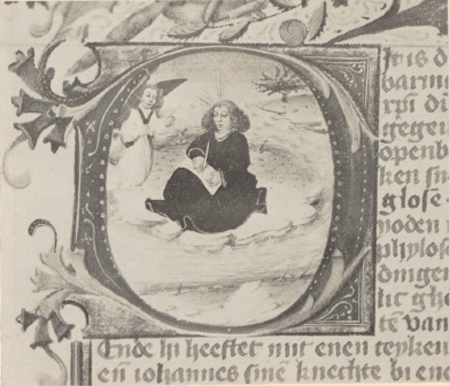 It is d
baring
xpi di
gegeu
openb
ken sin
glose
yoden
phyloso
dingen
lic ghe
tē van
Ende hi heeftet mit enen teyken
eñ iohannes sinē knechte bi ene